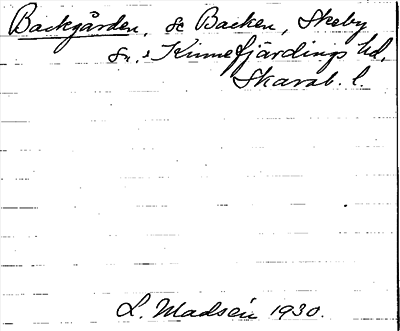 Backgården, se Backen, Skeby
sn., Kinnefjärdings hd,
Skarab. l.
L. Madsén 1930.